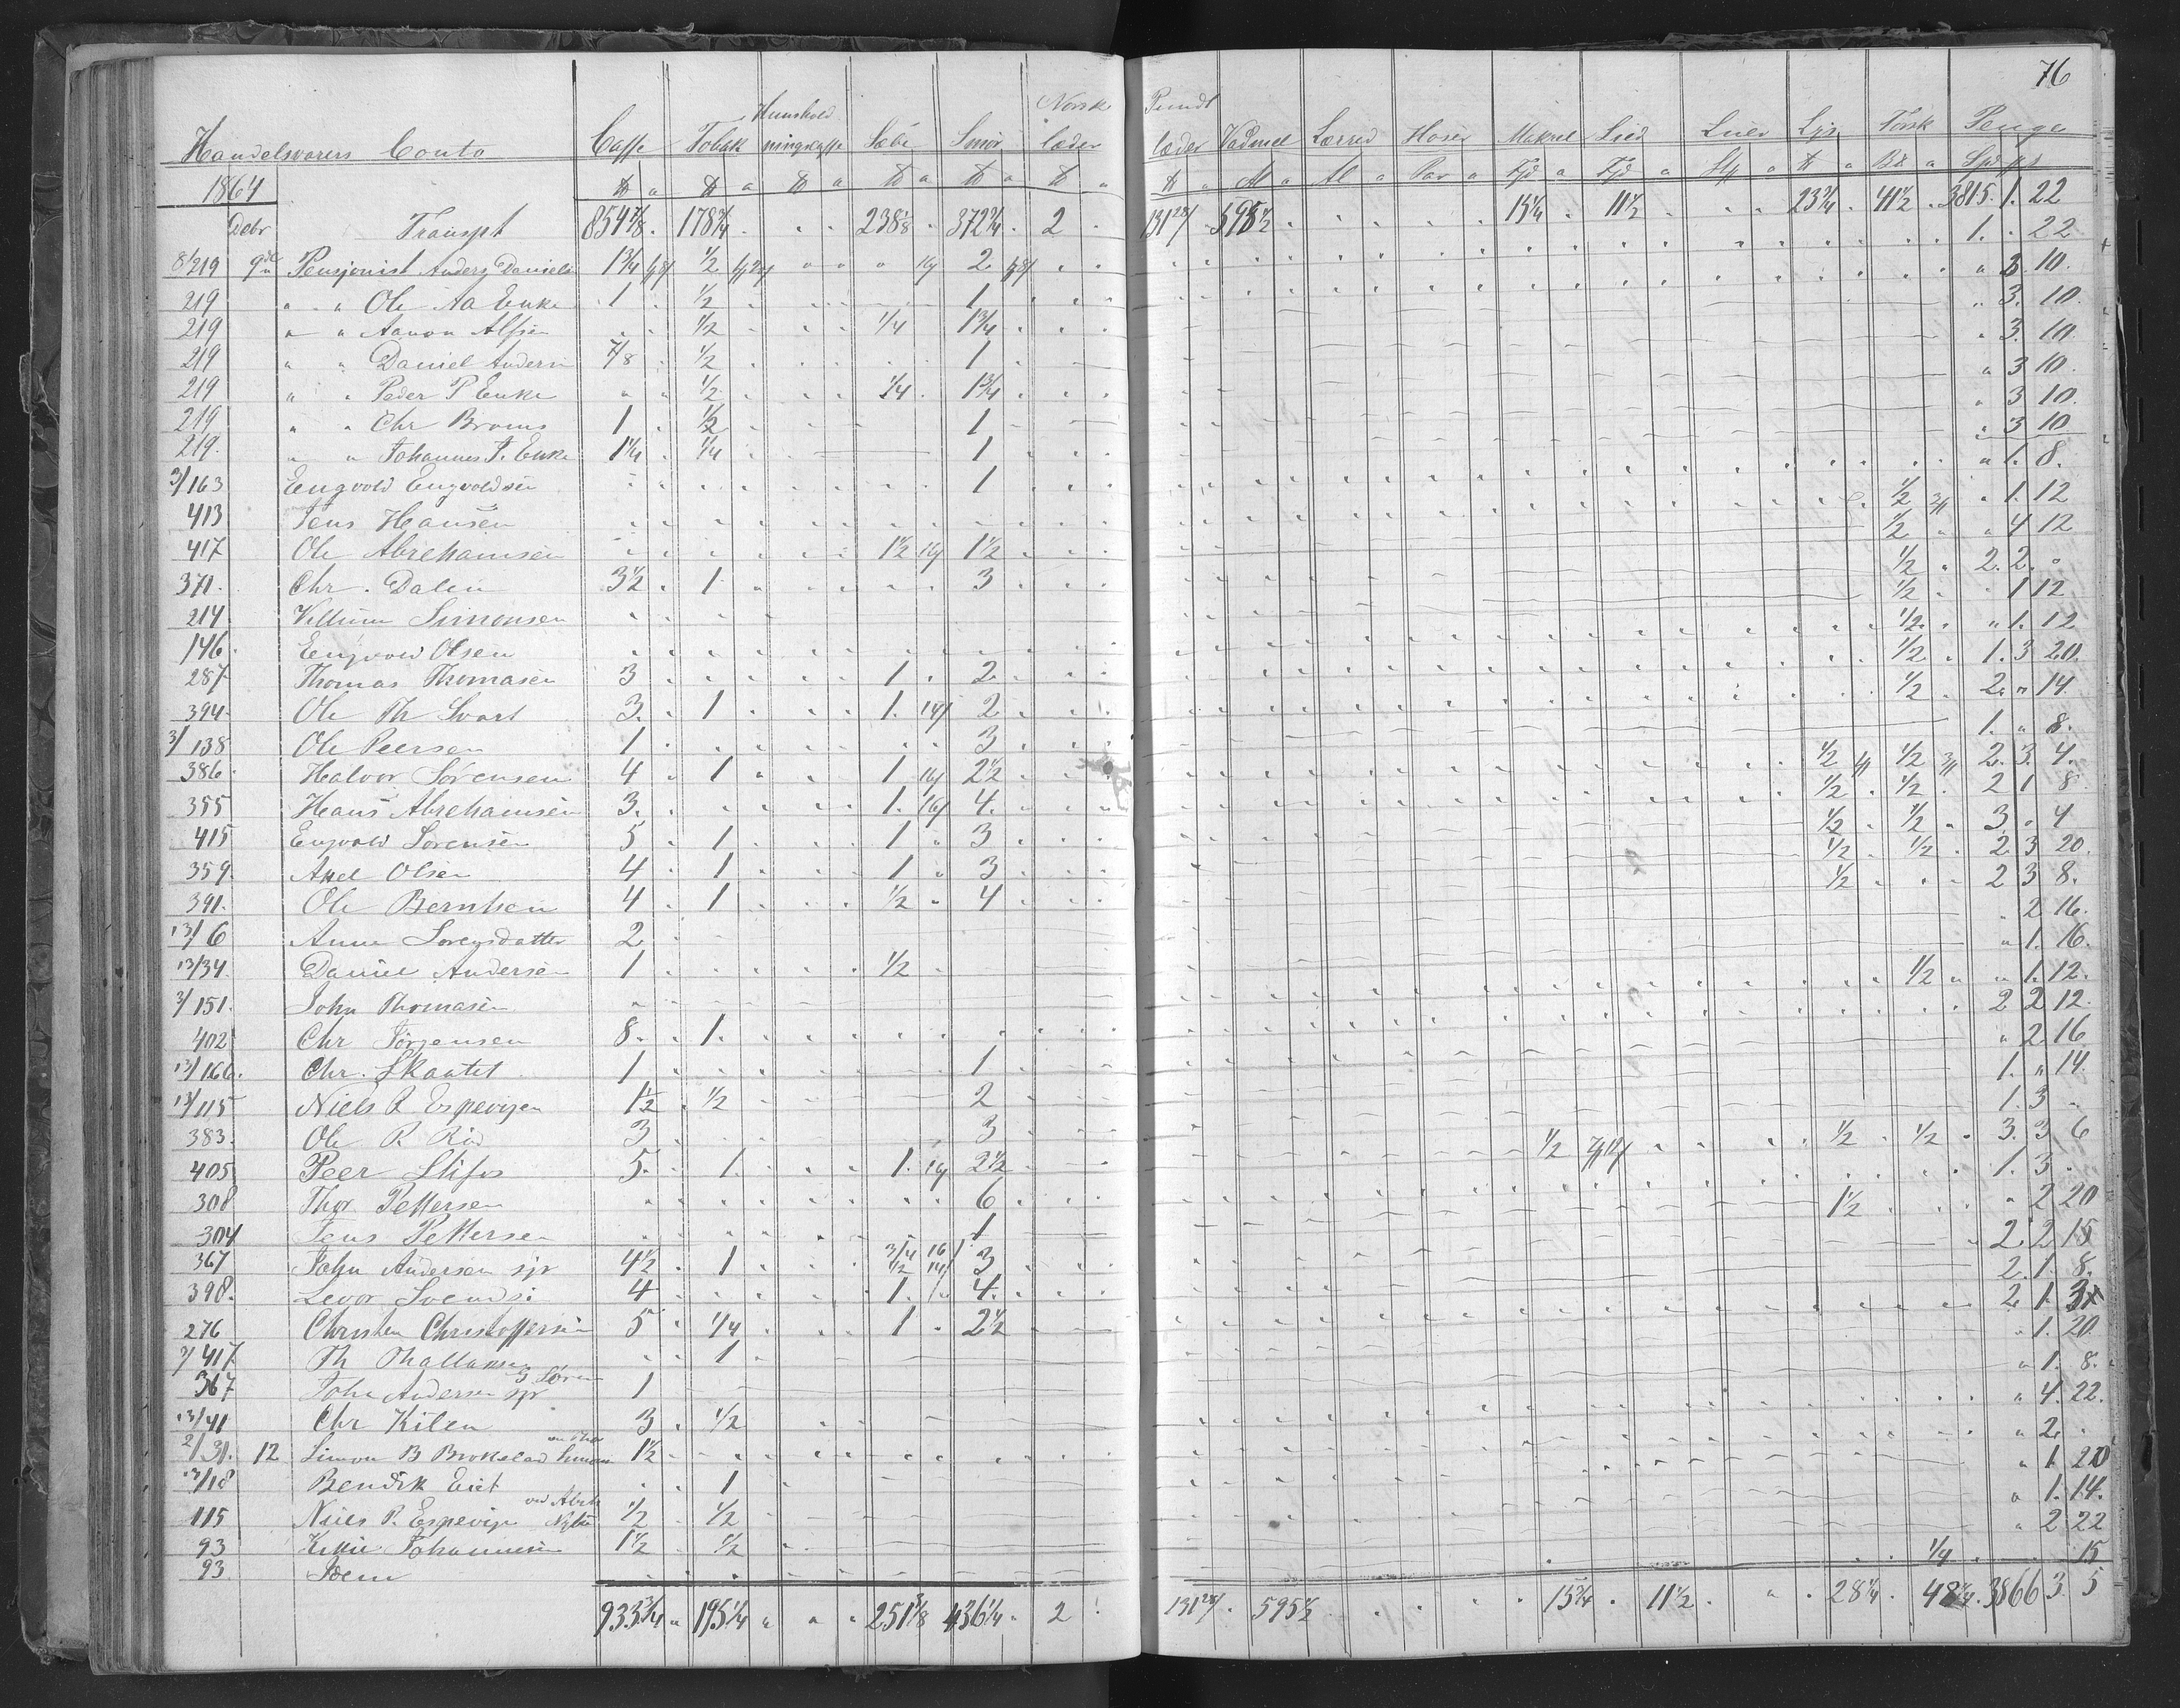 76
Huushold Norsk Pundt
Handelsvarers Conto Caffe Tobak ningscaffe Sæbe Smör læder læder Vadmel Lærred Hoser Makrel Sild Luer Lys Torsk Penge
1864 ℔ a ℔ a ℔ a ℔ a ℔ a ℔ a ℔ a Al a Al a Par a Fjd a Fjd a Stk a ℔ a a Spd
Debr Transpt 854 7/8 178 3/4 238 1/8 372 3/4 2 131 595 1/2 15 1/4 11 1/2 23 3/4 41 1/2 3815. 1. 22
8/219 9de Pensjonist Anders Daniels 1 3/4 1/2 2 1. 22
219 " " Ole Aa Enke 1 1/2 1 3. 10.
219 " " Aanon Alfsen 1/2 1/4 1 3/4 3. 10.
219 " " Daniel Andersn 7/8 1/2 1 3. 10.
219 " " Peder P Enke 1/2 1/4 1 3/4 3 10.
219 " " Chr Broms 1 1/2 1 3 10.
219. " " Johannes J. Enke 1 1/4 1/4 1 3 10
3/163 Engvold Engvoldsen 1 1. 8.
413 Jens Hansen 1/2 1. 12
417 Ole Abrehamsen 1 1/2 1 1/2 1/2 4 12
371. Chr. Dalen 3 1/2 1 3 1/2 2. 2.
214 Villum Simonsen 1/2 1 12
146. Engvold Olsen 1/2 1. 12
287 Thomas Thomasen 3 1 2 1/2 1. 3 20.
394. Ole Th Svart 3. 1 1. 2 1/2 2 " 14.
3/138 Ole Peersen 1 3 1. " 8.
386. Halvor Sörensen 4 1 1 2 1/2 1/2 1/2 2. 3. 4.
355 Hans Abrehamsen 3. 1. 4. 1/2 1/2 2 1 8
415 Engvold Sörensen 5 1 1 3 1/2 1/2 3 " 4
359. Axel Olsen 4 1 1 3 1/2 1/2 2 3 20.
391. Ole Berntsen 4 1 1/2 4 1/2 2 3 8.
13/6 Anne 2 2 16.
13/34. Daniel Andersen 1 1/2 " 1. 16.
3/151. John Thomasen 1/2 " 1. 12.
402 Chr Jörgensen 8. 1. 2 2 12.
13/166. Chr. Skaatet 1 1 " 2 16
13/115 Niels R Espevigen 1 1/2 1/2 2 1. " 14.
383. Ole R. Riis 3 3 1. 3
405 Peer Stifos 5. 1. 1. 2 1/2 1/2 1/2 1/2 3. 3 6
308 Thor Pettersen 6 1. 3
304 Jens Pettersen 1 1/2 " 2 20
367 John Andersen sjr 4 1/2 1 3/4 1/2 3 2. 2 15
398. Levor Svends: 4 1. 4. 2. 1. 8.
276 Christen Christoffersen 5 1/4 1 2 1/2 2. 1.
3/417 Th Thallaksen 1 1. 20.
367 John Andersen sjr 1 " 1. 8.
13/41 Chr Kilen 3 1/2 " 4. 22.
2/31. 12 Simon B Brokelad 1 1/2 " 2
13/18 Bendik Eiet 1 " 1 20
115 Niels R. Espevigen 1/2 1/2 1. 14.
93 Johannesen 1 1/2 1/2 2 22
93. Idem 1/4 15
933 3/4 195 1/4 251 3/8 436 1/4 2 131 595 1/2 15 3/4 11 1/2 28 1/4 48 1/4 3866 3. 5